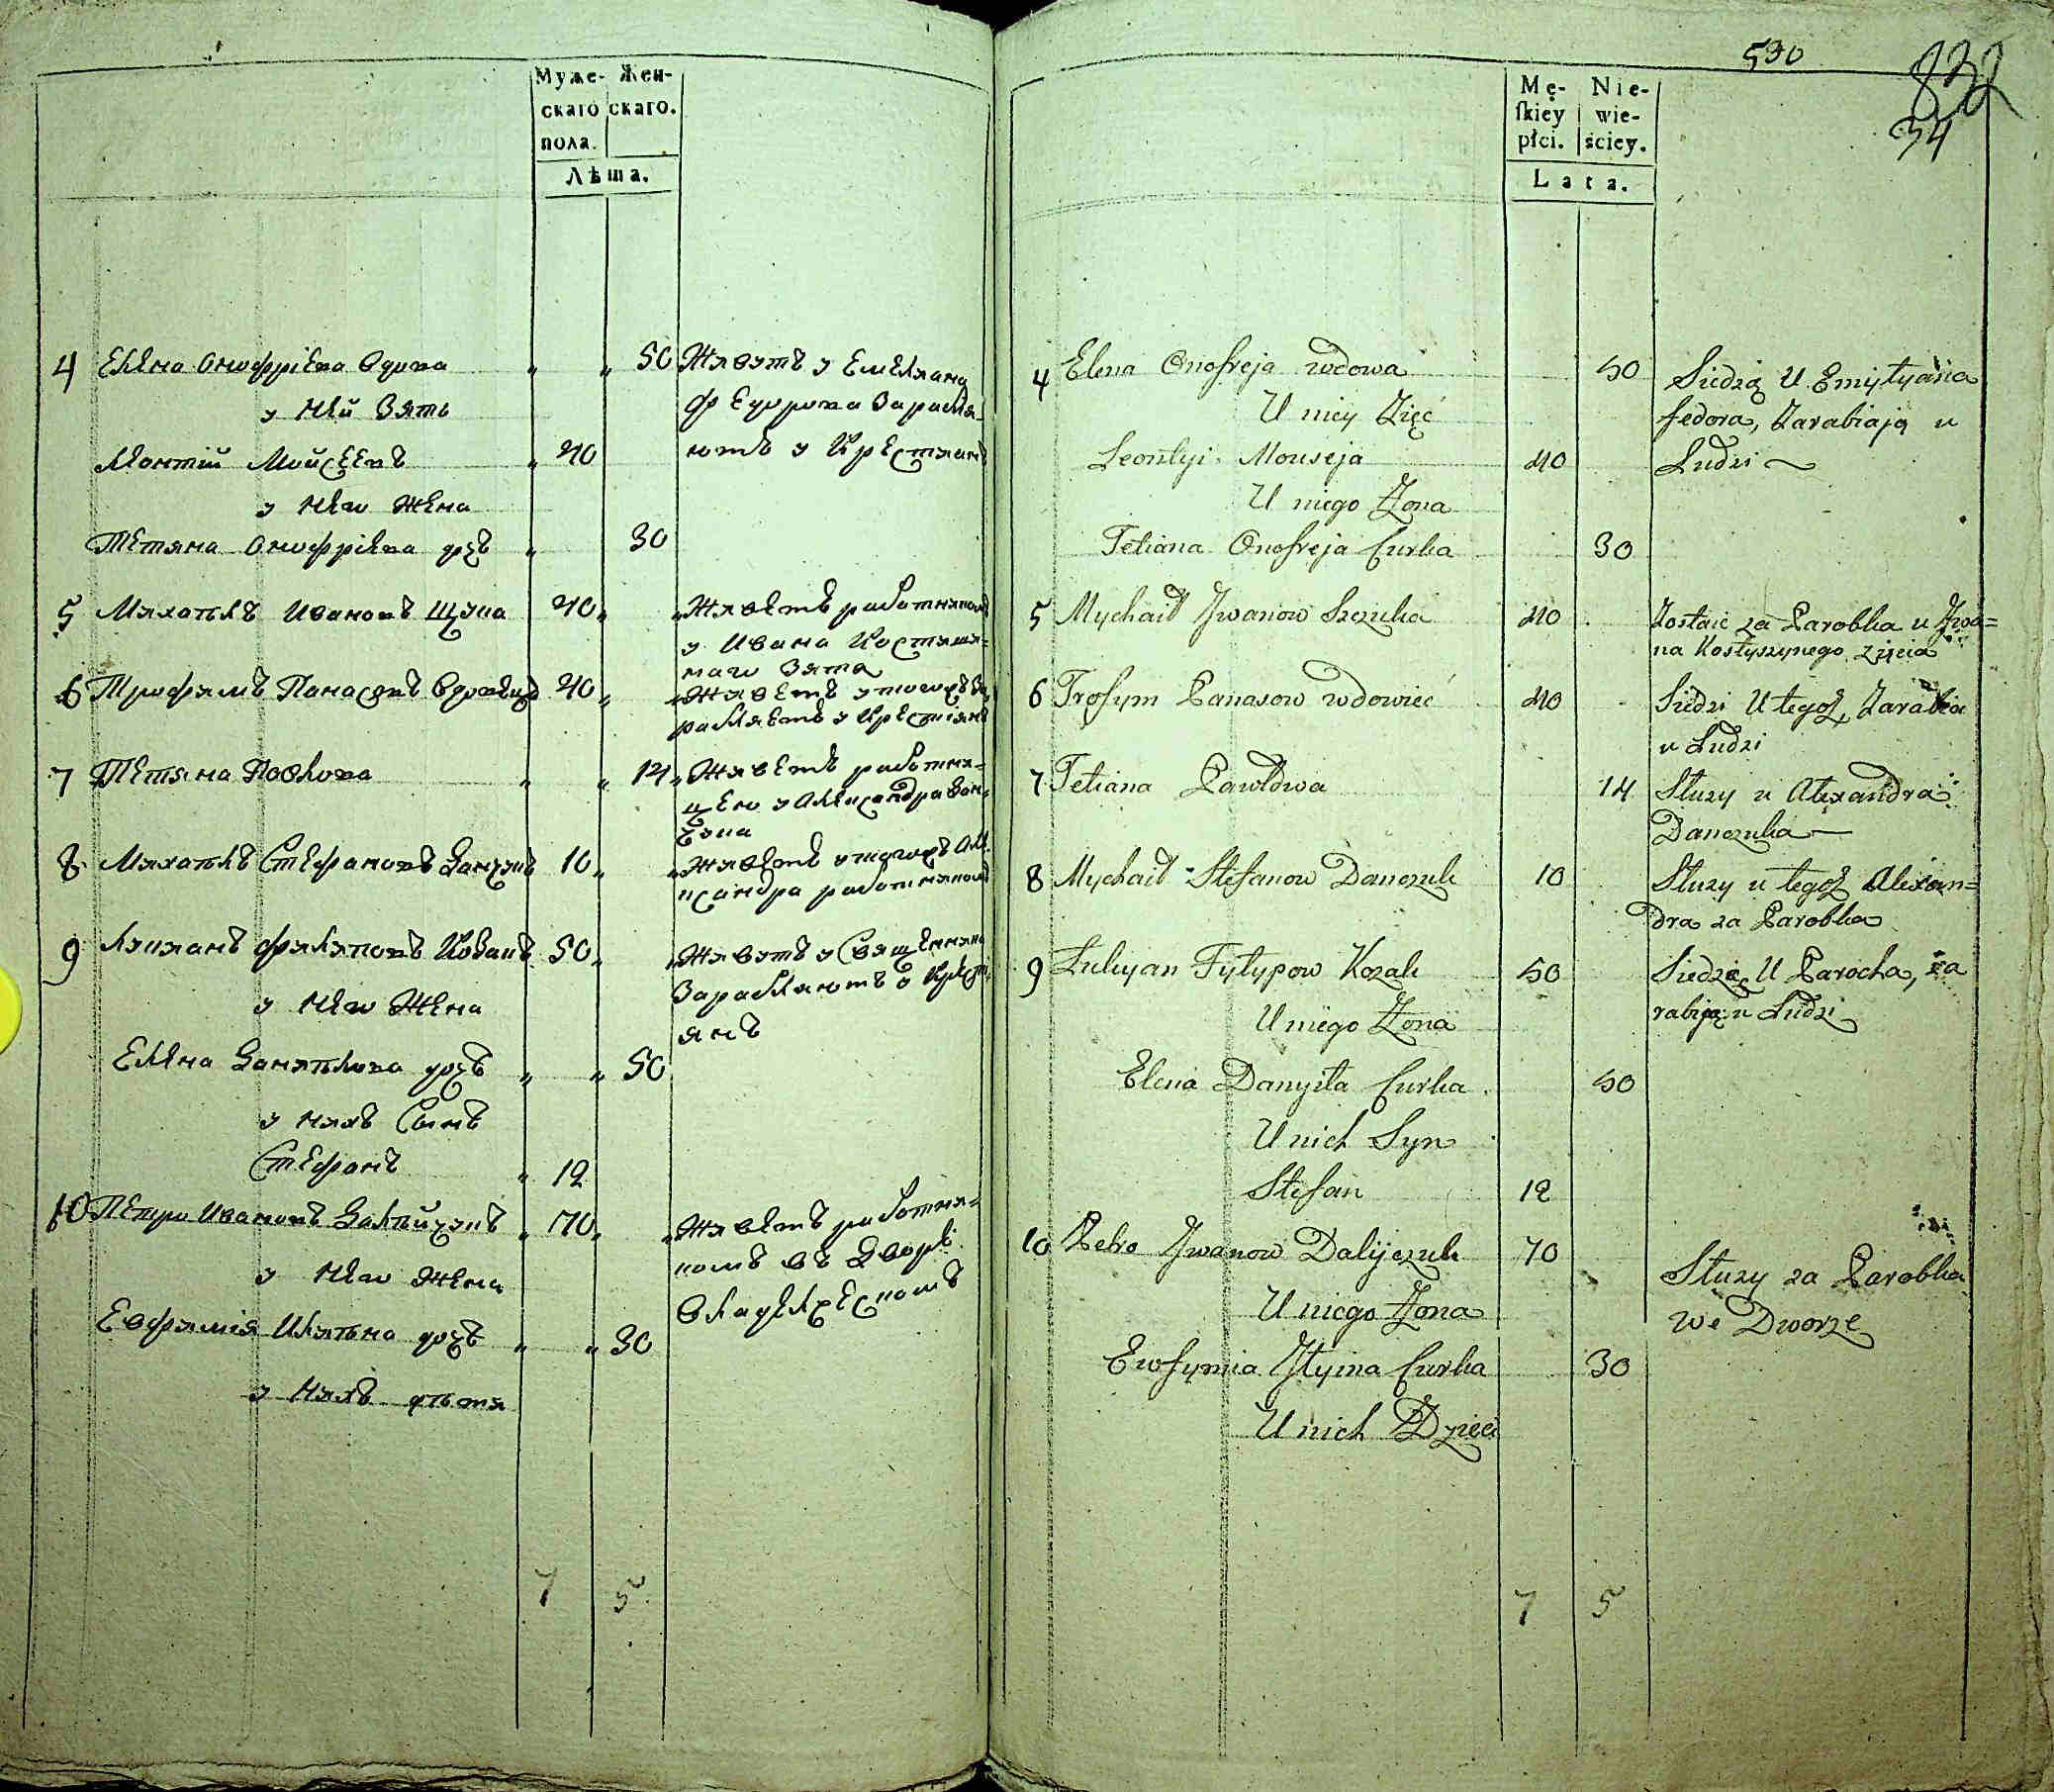 Муже- Жен-
скаго скаго.
пола.
Лѣта.
4 Елена Онофрієва вдова " " 50 Живутъ у Емелияна
у ней зять Федорова зарабля-
Леонтій Мойсеевъ " 40 ютъ у крестиянъ
у него жена
Тетяна Онофрієва дочъ " 30
5 Михаилъ Ивановъ Щука 40 " " Живетъ работникомъ
у Ивана Костиши-
наго зятя
6 Трофимъ Панасовъ вдовецъ 40 " " Живетъ у тогожъ за-
рабляетъ у крестіянъ
7 Тетяна Павлова " " 14 " Живетъ работни-
цею у Александра Дан-
чука
8 Михаилъ Стефановъ Данчукъ 10 " " Живетъ у тогожъ Але-
ксандра работникомъ
9 Лукиянъ Филиповъ Козакъ 50 " " Живутъ у священника
у него жена зарабляютъ у крест-
янъ
Елена Данаилова дочъ " " 50
у нихъ сынъ
Стефанъ " 12
10 Петро Ивановъ Далийчукъ " 70 " " Живетъ работни-
комъ въ дворѣ
у него жена владелческомъ
Евфимія Ильина дочъ " " 30
у нихъ дѣти
7 5
530
832
34
Mę- Nie-
skiey wie-
płci. ściey.
Lata.
4 Elena Onofreja wdowa 50 Siedzą U Emiłyana
U niey Zięć fedora, Zarabiają u
Leontyi Mouseja 40 Ludzi
U niego Zona
Tetiana Onofreja Curka 30
5 Mychaił Iwanow Szczuka 40 Zostaie za Parobka u Iwa=
na Kostyszynego zięcia
6 Trofym Panasow wdowiec 40 Siedzi U tegoż, Zarabia
u Ludzi
7 Tetiana Pawłowa 14 Słuzy u Alexandra
Danczuka
8 Mychaił Stefanow Danczuk 10 Słuzy u tegoż Alexan=
dra za Parobka
9 Lukyan Fyłypow Kozak 50 Siedzą U Parocha, za
U niego Zona rabiją u Ludzi
Elena Danyiła Curka 50
U nich Syn
Stefan 12
10 Petro Iwanow Dalijczuk 70 Słuzy za Parobka
U niego Zona we Dworze
Ewfymia Iłyina Curka 30
U nich Dzieci
7 5